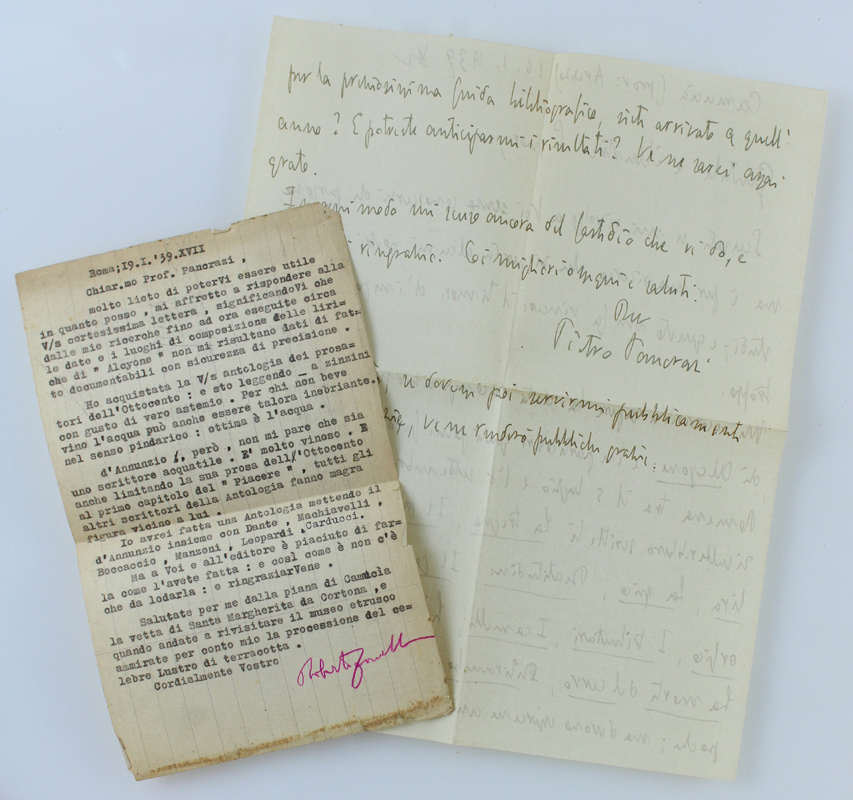 per la preziosissima Guida bibliografica, siete arrivato a quell'
anno? E potreste anticiparmi i risultati? Ve ne sarei assai
grato.
In ogni modo mi scuso ancora del fastidio che vi do, e
ringrazio. Coi migliori ossequi e saluti.
Pietro Pancrazi
, se dovessi poi servirmi pubblicamente
, ve ne renderò pubbliche grazie.
Roma;19.I.'39.XVII
Chiar.mo Prof. Pancrazi ,
molto lieto di poterVi essere utile
in quanto posso , mi affretto a rispondere alla
V/s cortesissima lettera , significandoVi che
dalle mie ricerche fino ad ora eseguite circa
le date e i luoghi di composizione delle liri=
che di " Alcyone " non mi risultano dati di fat=
to documentabili con sicurezza di precisione .
Ho acquistata la V/s antologia dei prosa=
tori dell'Ottocento : e sto leggendo - a zinzini
con gusto di vero astemio . Per chi non beve
vino l'acqua può anche essere talora inebriante.
nel senso pindarico : ottima è l'acqua .
d'Annunzio , però , non mi pare che sia
uno scrittore acquatile . E' molto vinoso . E
anche limitando la sua prosa dell'Ottocento
al primo capitolo del " Piacere " , tutti gli
altri scrittori della Antologia fanno magra
figura vicino a lui .
Io avrei fatta una Antologia mettendo il
d'Annunzio insieme con Dante , Machiavelli ,
Boccaccio , Manzoni , Leopardi , Carducci.
Ma a Voi e all'editore è piaciuto di far=
la come l'avete fatta : e così come è non c'è
che da lodarla : e ringraziarVene .
Salutate per me dalla piana di Camucia
la vetta di Santa Margherita da Cortona , e
quando andate a rivisitare il museo etrusco
ammirate per conto mio la processione del ce=
lebre Lustro di terracotta .
Cordialmente Vostro
Roberto